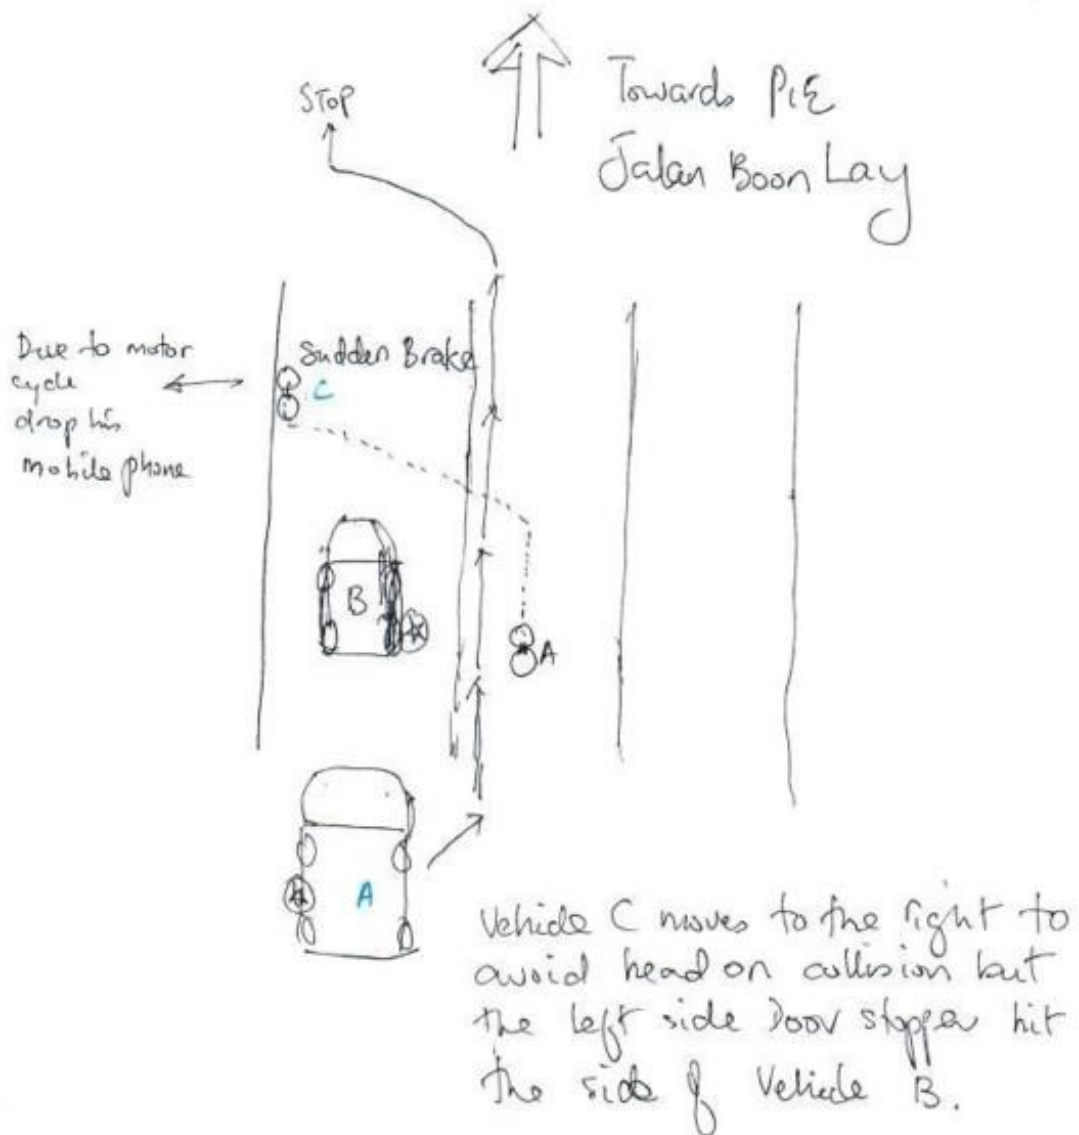 STOP
Towards PIE
Jalan Boon Lay
Due to motor
cycle
drop his
mobile phone
Sudden Brake
C
B
A
A
Vehicle C moves to the right to
avoid head on collision but
the left side Door stopper hit
the side of Vehicle B.